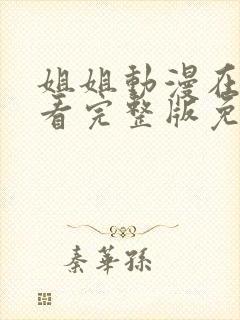 姐姐動漫在
看完整版免
秦華孫